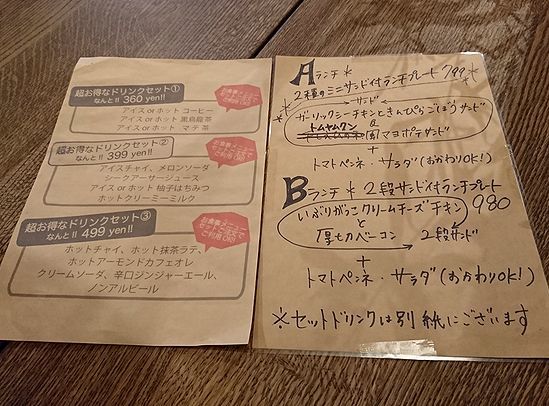 超お得なドリンクセット①
なんと!! 360 yen!!
お食事メニュー
セット注文で
ご利用OK!!
アイス or ホット コーヒー
アイス or ホット 黒烏龍茶
アイス or ホット マテ茶
超お得なドリンクセット②
なんと!! 399 yen!!
お食事メニュー
セット注文で
ご利用OK!!
アイスチャイ、メロンソーダ
シークアーサージュース
アイス or ホット 柚子はちみつ
ホットクリーミーミルク
超お得なドリンクセット③
なんと!! 499 yen!!
お食事メニュー
セット注文で
ご利用OK!!
ホットチャイ、ホット抹茶ラテ、
ホットアーモンドカフェオレ
クリームソーダ、辛口ジンジャーエール、
ノンアルビール
Aランチ*
2種のミニサンド付ランチプレート 799
サンド
ガーリックシーチキンときんぴらごぼうサンド
&
トムヤムクン
風マヨポテサンド
+
トマトペンネ・サラダ(おかわりOK!)
Bランチ* 2段サンド付ランチプレート
980
いぶりがっこクリームチーズチキン
と
厚切ベーコン → 2段サンド
+
トマトペンネ・サラダ(おかわりOK!)
※セットドリンクは別紙にございます